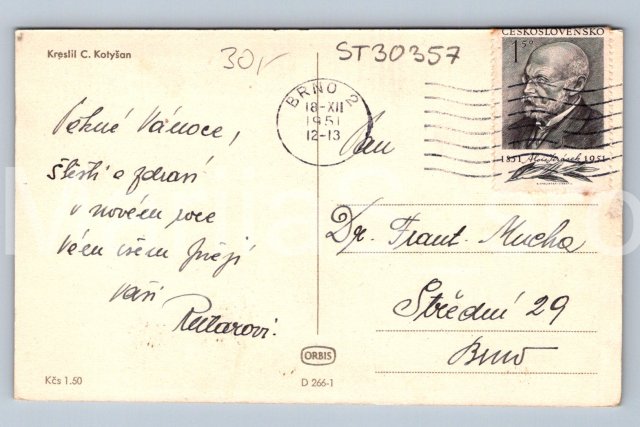 Kreslil C. Kotyšan
30,-
ST30357
ČESKOSLOVENSKO
1 50
1851 Alois Jirásek 1951
BRNO 2
18-XII
1951
12-13
Pekné Vánoce,
štěstí a zdraví
v novém roce
Vám všem přejí
Vaši
Pan
Dr. Frant. Mucha
Střední 29
Brno
ORBIS
Kčs 1.50
D 266-1